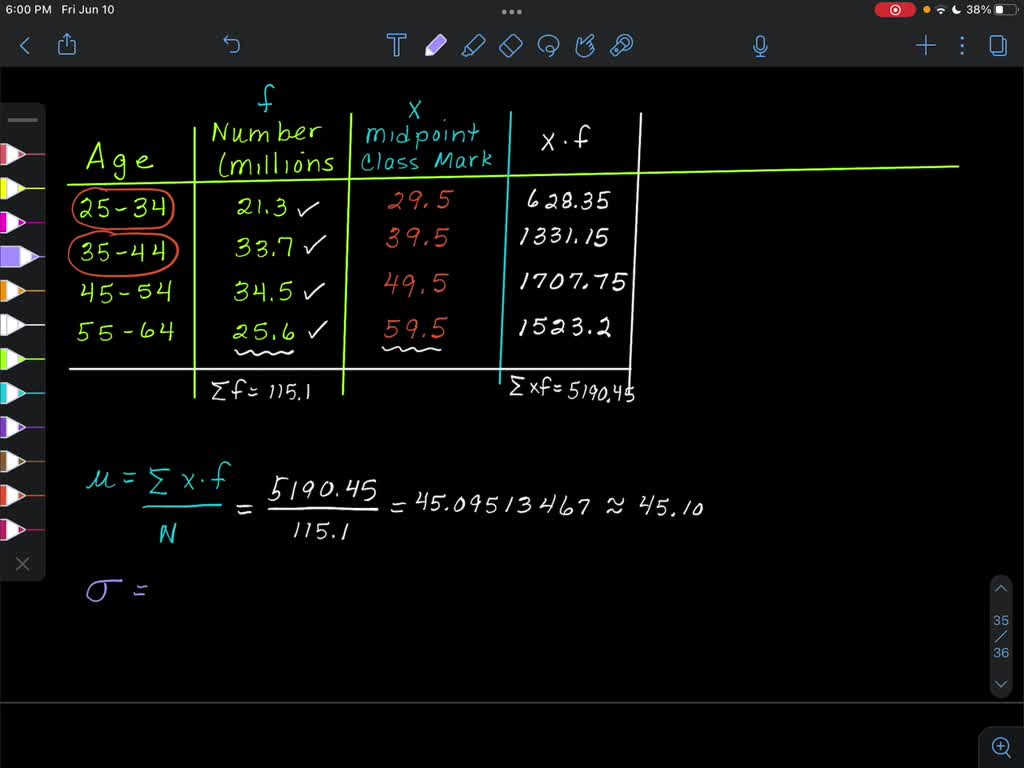 6:00 PM Fri Jun 10
38%
T
f
x
Age
Number
(millions
midpoint
Class Mark
x·f
25-34 21.3 ✓ 29.5 628.35
35-44 33.7 ✓ 39.5 1331.15
45-54 34.5 ✓ 49.5 1707.75
55-64 25.6 ✓ 59.5 1523.2
Σf = 115.1
Σxf = 5190.45
μ = Σx·f / N = 5190.45 / 115.1 = 45.09513467 ≈ 45.10
σ =
35
/
36